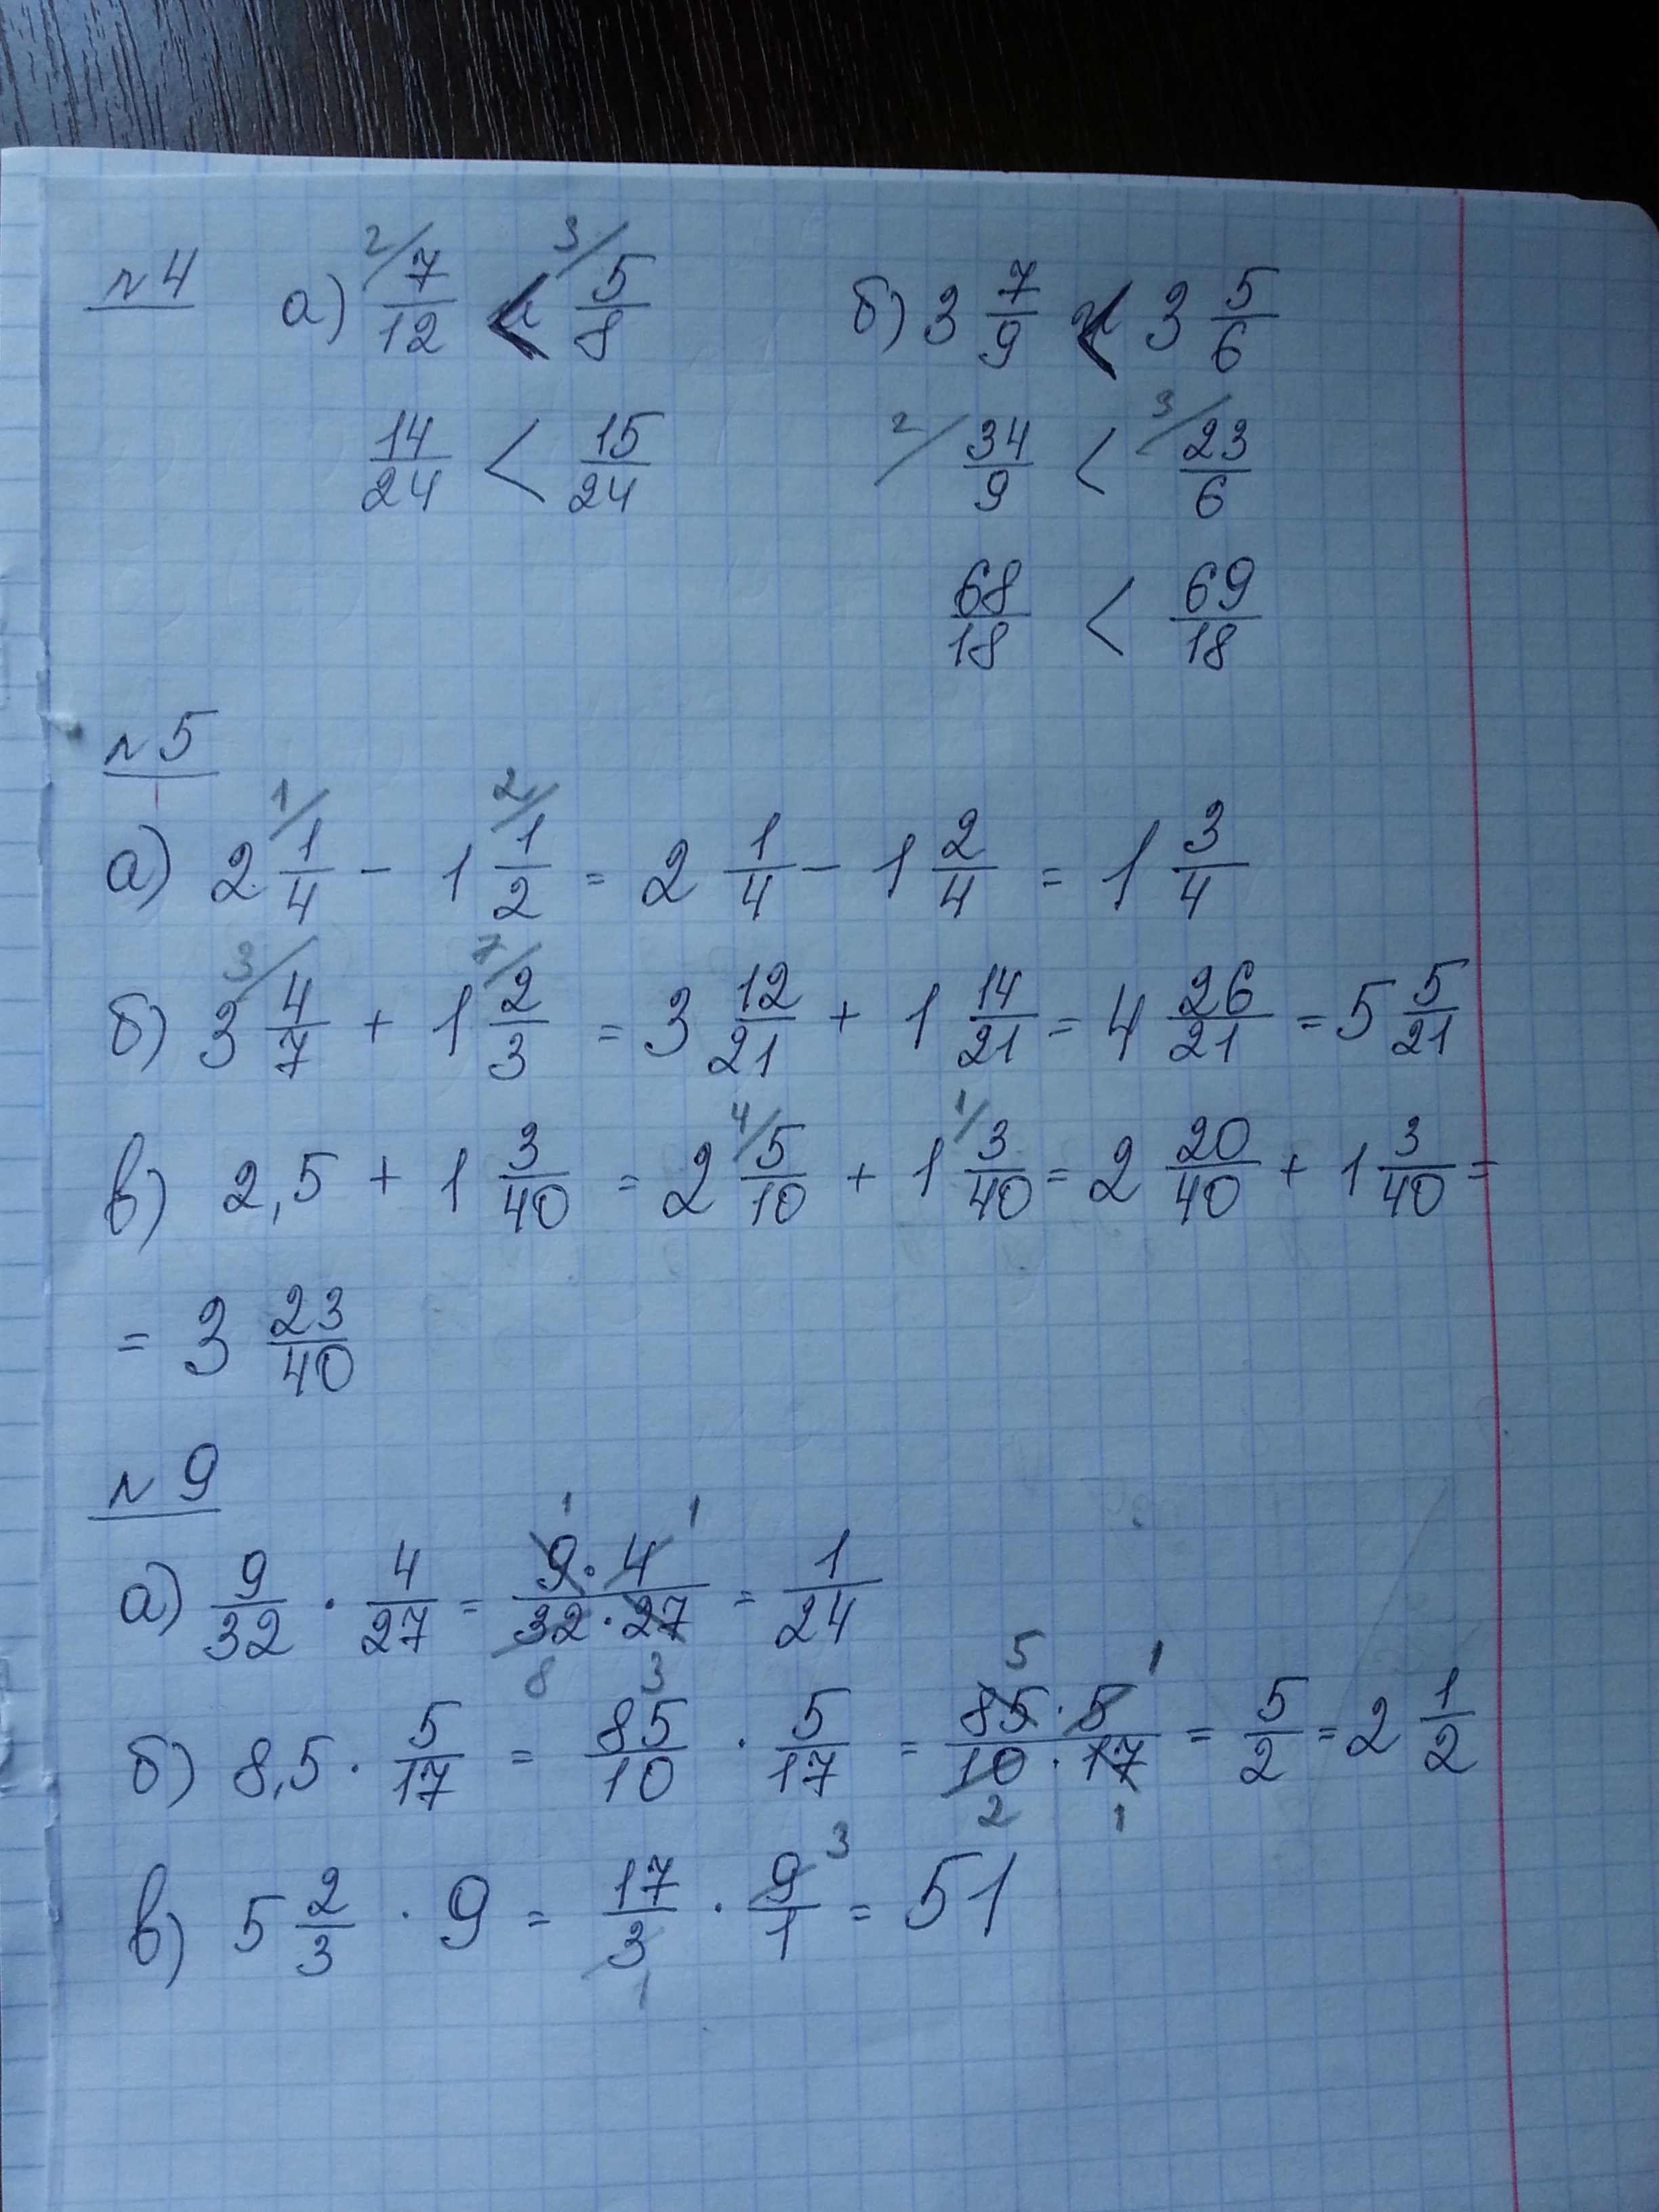 №4 а) 7/12 < 5/8 б) 3 7/9 < 3 5/6
14/24 < 15/24 34/9 < 23/6
68/18 < 69/18
№5
а) 2 1/4 - 1 1/2 = 2 1/4 - 1 2/4 = 1 3/4
б) 3 4/7 + 1 2/3 = 3 12/21 + 1 14/21 = 4 26/21 = 5 5/21
в) 2,5 + 1 3/40 = 2 5/10 + 1 3/40 = 2 20/40 + 1 3/40 =
= 3 23/40
№9
а) 9/32 · 4/27 = 9·4/32·27 = 1/24
б) 8,5 · 5/17 = 85/10 · 5/17 = 85·5/10·17 = 5/2 = 2 1/2
в) 5 2/3 · 9 = 17/3 · 9/1 = 51